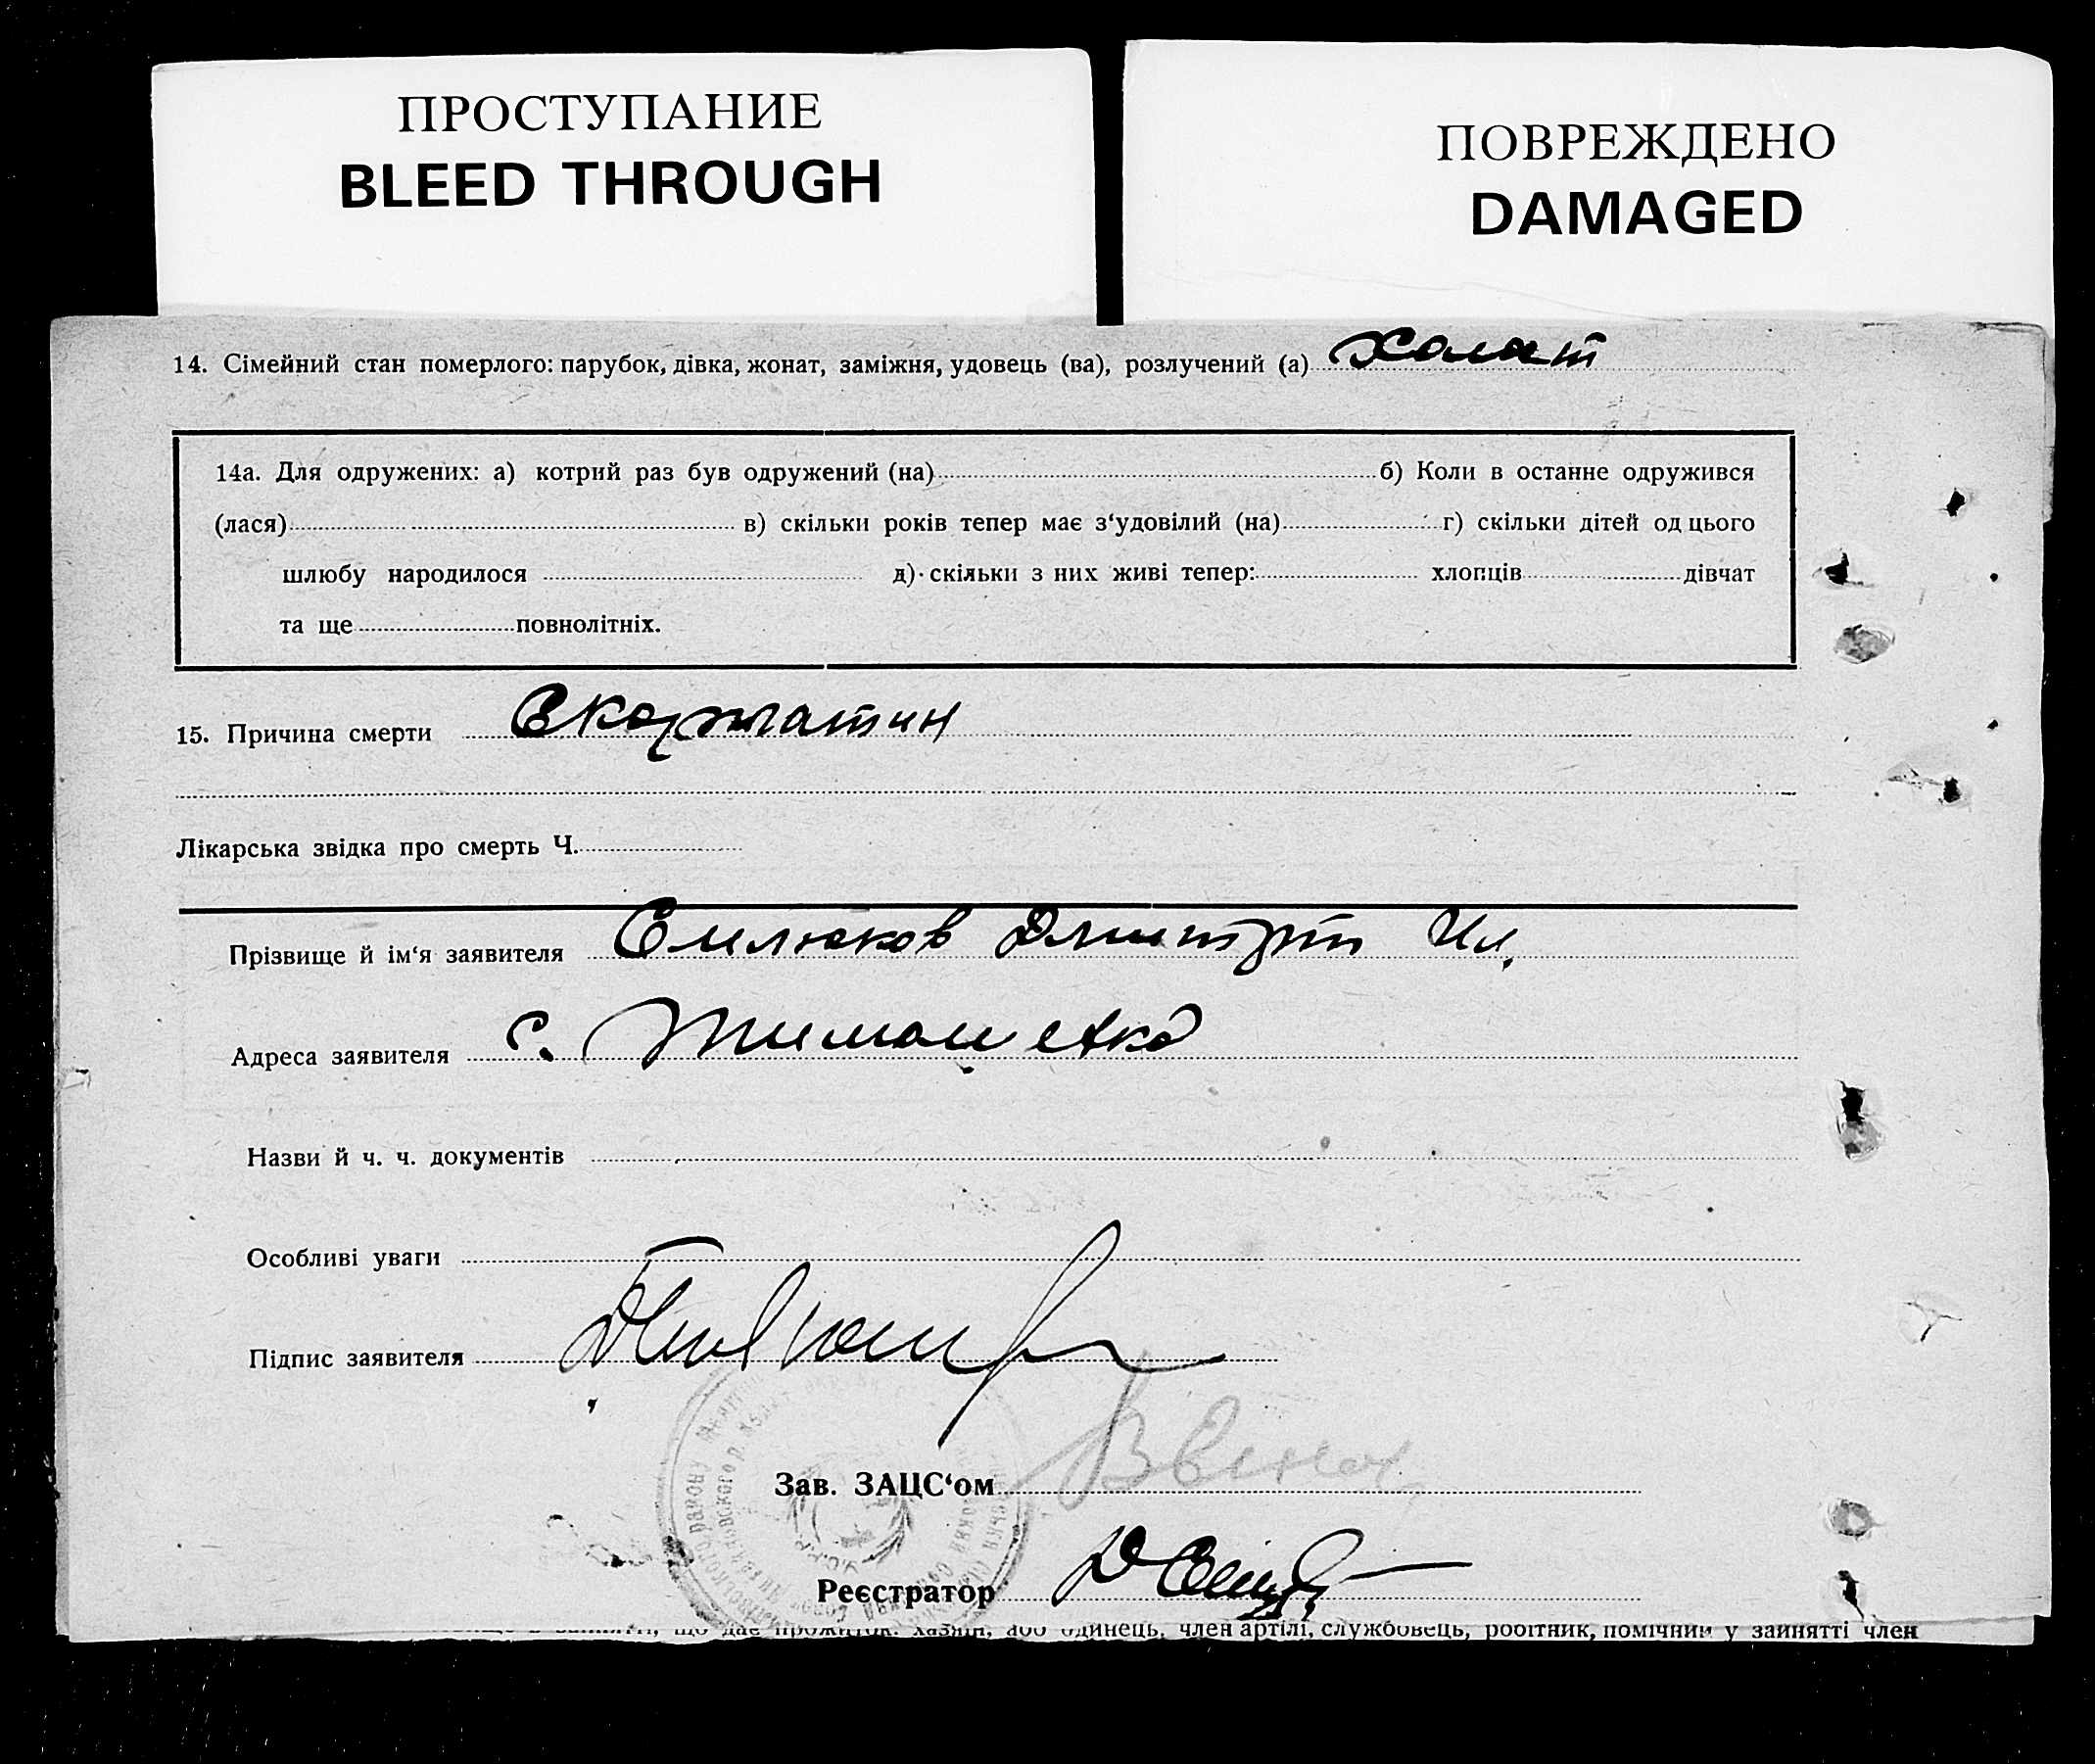 ПРОСТУПАНИЕ
BLEED THROUGH
ПОВРЕЖДЕНО
DAMAGED
14. Сімейний стан померлого: парубок, дівка, жонат, заміжня, удовець (ва), розлучений (а) Холост
14а. Для одружених: а) котрий раз був одружений (на) б) Коли в останне одружився
(лася) в) скільки років тепер має з‘удовілий (на) г) скільки дітей од цього
шлюбу народилося д) скільки з них живі тепер: хлопців дівчат
та ще повнолітніх.
15. Причина смерти Скарлатин
Лікарська звідка про смерть Ч.
Прізвище й ім‘я заявителя Дмитрий Ил.
Адреса заявителя с. Тимошевка
Назви й ч. ч. документів
Особливі уваги
Підпис заявителя
Зав. ЗАЦС‘ом
Реєстратор
що дає прожиток: хазяїн, або одинець, член артілі, службовець, робітник, помічний у занятті член